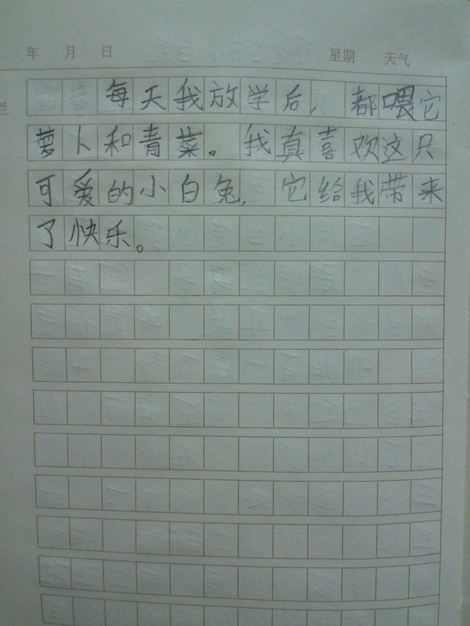 年 月 日 星期 天气
每天我放学后，都喂它
萝卜和青菜。我真喜欢这只
可爱的小白兔，它给我带来
了快乐。